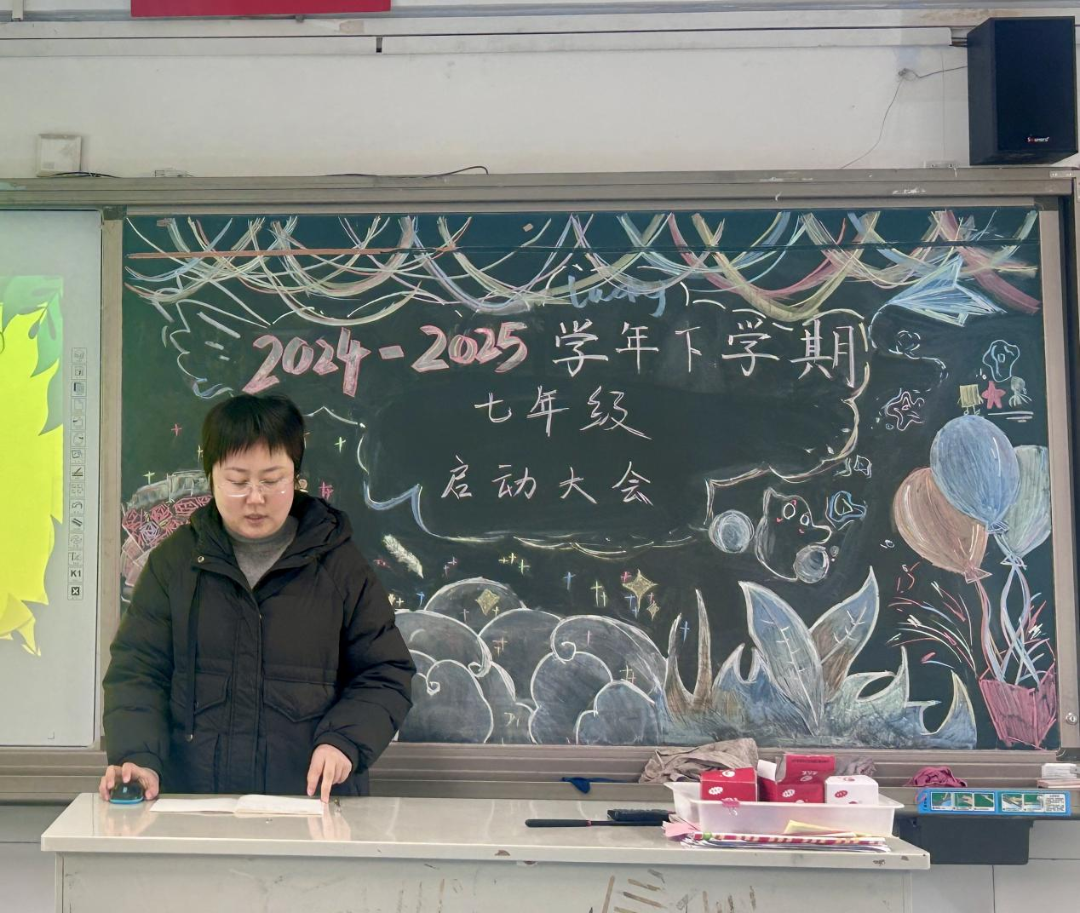 lucky
2024-2025 学年下学期
七年级
启动大会
K1